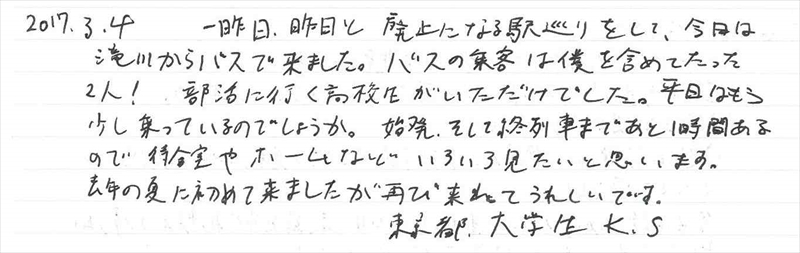 2017.3.4 一昨日、昨日と廃止になる駅巡りをして、今日は
滝川からバスで来ました。バスの乗客は僕を含めてたった
2人! 部活に行く高校生がいただけでした。平日はもう
少し乗っているのでしょうか。始発、そして終列車まであと1時間ある
ので待合室やホームなどいろいろ見たいと思います。
去年の夏に初めて来ましたが再び来れてうれしいです。
東京都、大学生 K.S